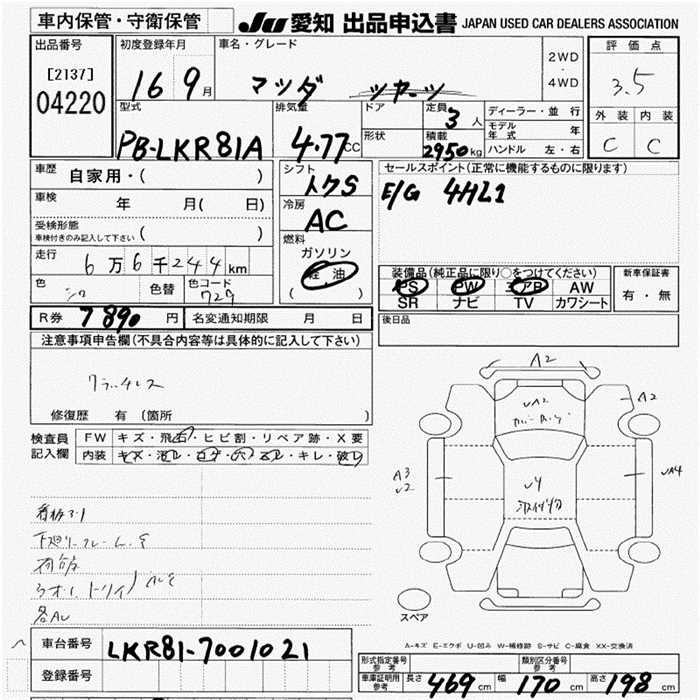 車内保管・守衛保管
JU 愛知 出品申込書 JAPAN USED CAR DEALERS ASSOCIATION
出品番号 初度登録年月 車名・グレード 評価点
[2137]
04220
16 9月 マツダ
2WD
・
4WD
3.5
型式 排気量 ドア 定員 ディーラー・並行
PB-LKR81A 4.77CC 3人
モデル年式 年
形状 積載 2950kg ハンドル 左・右
外装 内装
C C
車歴 自家用・( )
シフト
セールスポイント(正常に機能するものに限ります)
E/G 4HL1
車検 年 月( 日)
冷房
AC
受検形態
車検付きのみ記入して下さい ( )
燃料
ガソリン
軽油
( )
走行 6万6千244km
色 シロ 色替 色コード 729
装備品(純正品に限り○をつけてください) 新車保証書
PS PW エアB AW
SR ナビ TV カワシート
有・無
R券 7890円 名変通知期限 月 日
後日品
注意事項申告欄(不具合内容等は具体的に記入して下さい)
クラッチレス
修復歴 有(箇所 )
検査員
記入欄
FW キズ・飛石・ヒビ割・リペア跡・X要
内装 キズ・汚レ・コゲ・穴・スレ・キレ・破レ
A2
A2
A3
A4
スペア
A-キズ E-エクボ U-凹み W-補修跡 S-サビ C-腐食 XX-交換済
車台番号 LKR81-7001021
登録番号
形式指定番号
参考
類別区分番号
参考
車庫証明用
参考
長さ 469cm 幅 170cm 高さ 198cm